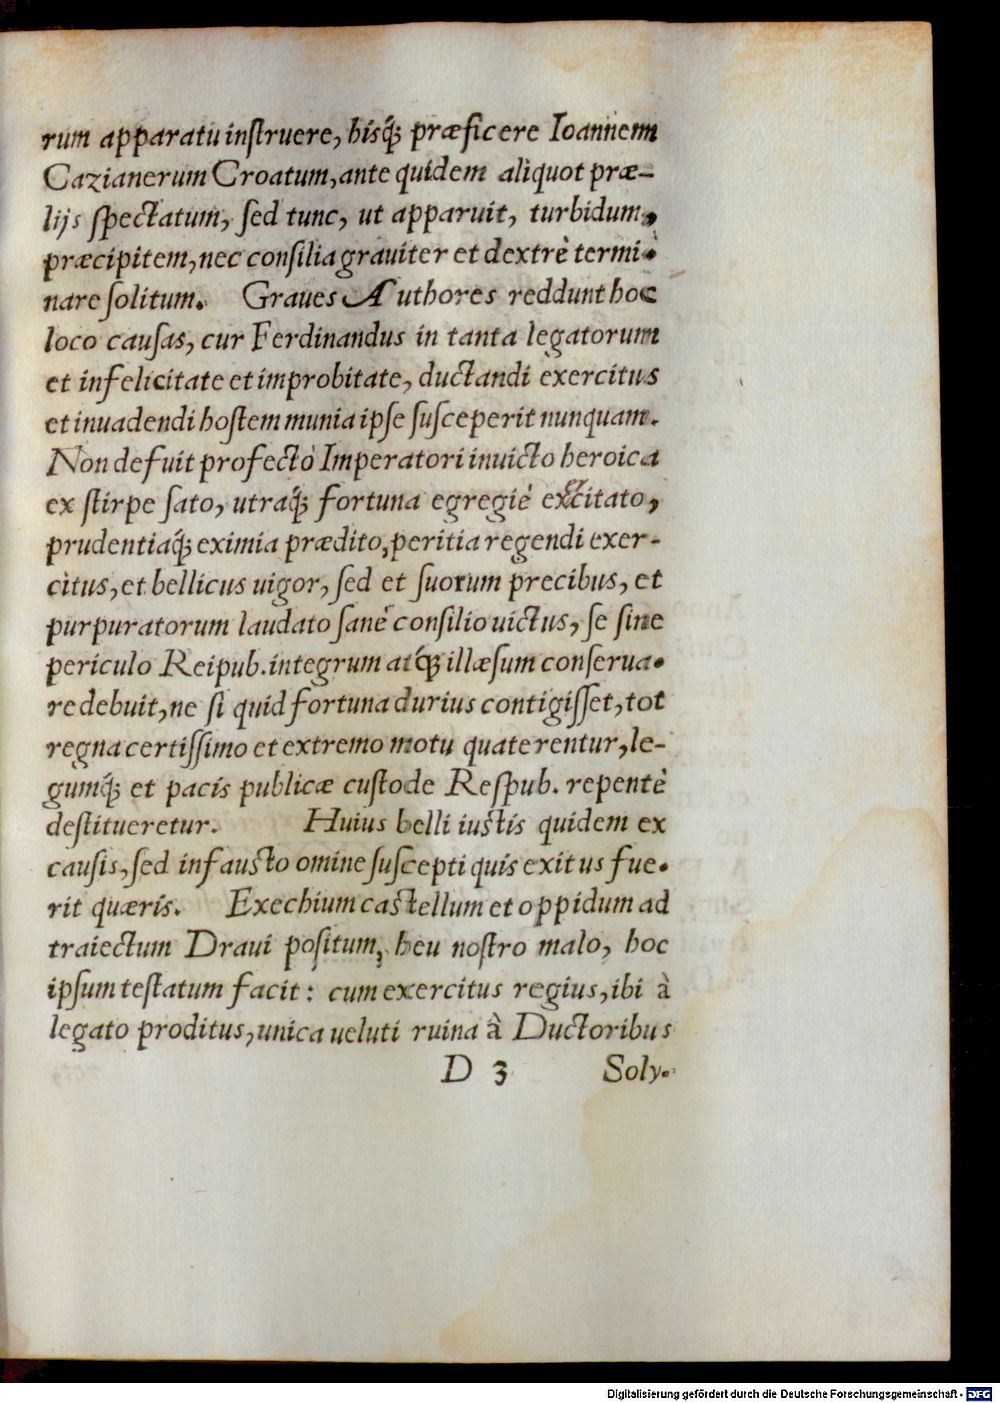 rum apparatu instruere, hisq́; præficere Ioannem
Cazianerum Croatum, ante quidem aliquot præ-
lijs spectatum, sed tunc, ut apparuit, turbidum,
præcipitem, nec consilia grauiter et dextrè termi-
nare solitum. Graues Authores reddunt hoc
loco causas, cur Ferdinandus in tanta legatorum
et infelicitate et improbitate, ductandi exercitus
et inuadendi hostem munia ipse susceperit nunquam.
Non defuit profectò Imperatori inuicto heroica
ex stirpe sato, utraq́; fortuna egregiè excitato,
prudentiaq́; eximia prædito, peritia regendi exer-
citus, et bellicus uigor, sed et suorum precibus, et
purpuratorum laudato sanè consilio uictus, se sine
periculo Reipub. integrum atq́; illæsum conserua-
re debuit, ne si quid fortuna durius contigisset, tot
regna certissimo et extremo motu quaterentur, le-
gumq́; et pacis publicæ custode Respub. repentè
destitueretur. Huius belli iustis quidem ex
causis, sed infausto omine suscepti quis exitus fue-
rit quæris. Exechium castellum et oppidum ad
traiectum Draui positum, heu nostro malo, hoc
ipsum testatum facit: cum exercitus regius, ibi à
legato proditus, unica ueluti ruina à Ductoribus
D 3 Soly-
Digitalisierung gefördert durch die Deutsche Forschungsgemeinschaft - DFG